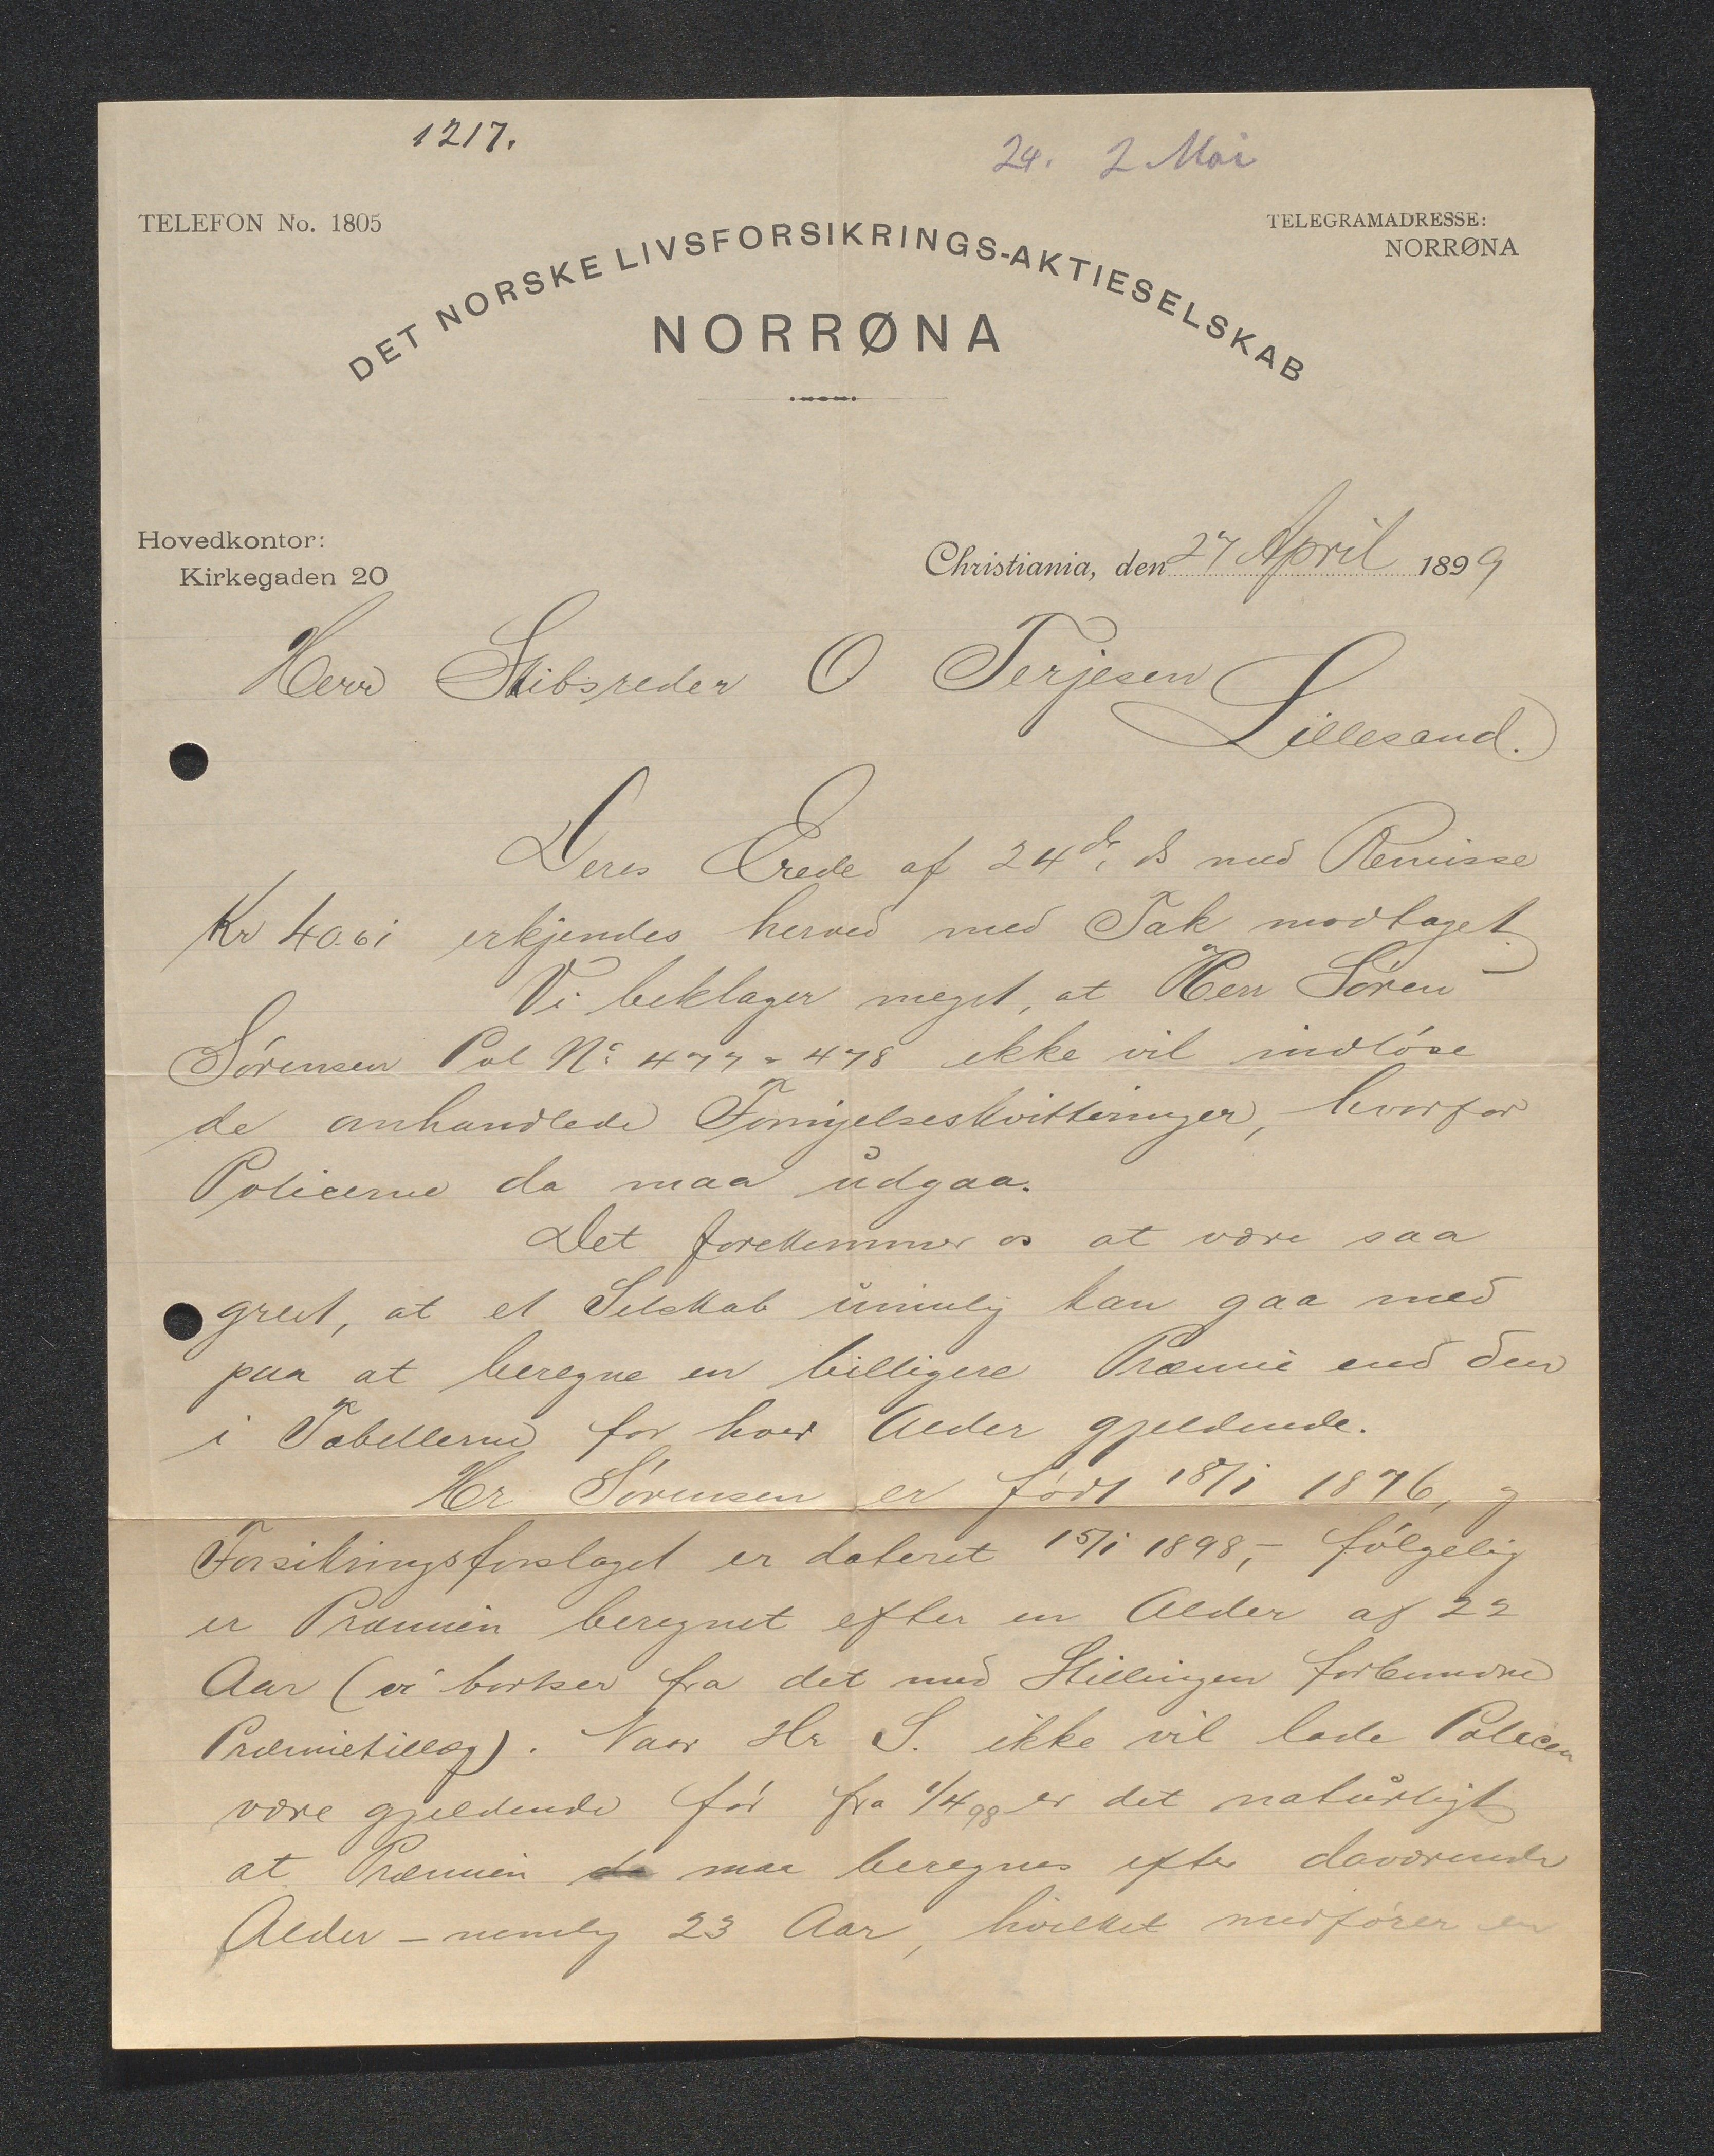 1217.
24. 2 Mai
TELEFON No. 1805
TELEGRAMADRESSE:
NORRØNA
DET NORSKE LIVSFORSIKRINGS-AKTIESELSKAB
NORRØNA
Hovedkontor:
Kirkegaden 20
Christiania, den 27 April 1899
Herr Skibsreder O Terjesen
Lillesand.
Deres Ærede af 24de ds med Remisse
Kr 40.61 erkjendes herved med Tak modtaget
Vi beklager meget, at Herr Søren
Sørensen Pol No 477 - 478 ikke vil indløse
de omhandlede Fornyelseskvitteringer, hvorfor
Policerne da maa udgaa.
Det forekommer os at være saa
greit, at et Selskab umulig kan gaa med
paa at beregne en billigere Præmie end den
i Tabellerne for hver Alder gjeldende.
Hr Sørensen er født 18/1 1876, og
Forsikringsforslaget er dateret 15/1 1898, - følgelig
er Præmien beregnet efter en Alder af 22
Aar (vi bortser fra det med Stillingen forbundne
Præmietillæg). Naar Hr S. ikke vil lade Policen
være gjeldende før fra 1/4 98 er det naturligt
at Præmien da maa beregnes efter daværende
Alder - nemlig 23 Aar, hvilket medfører en